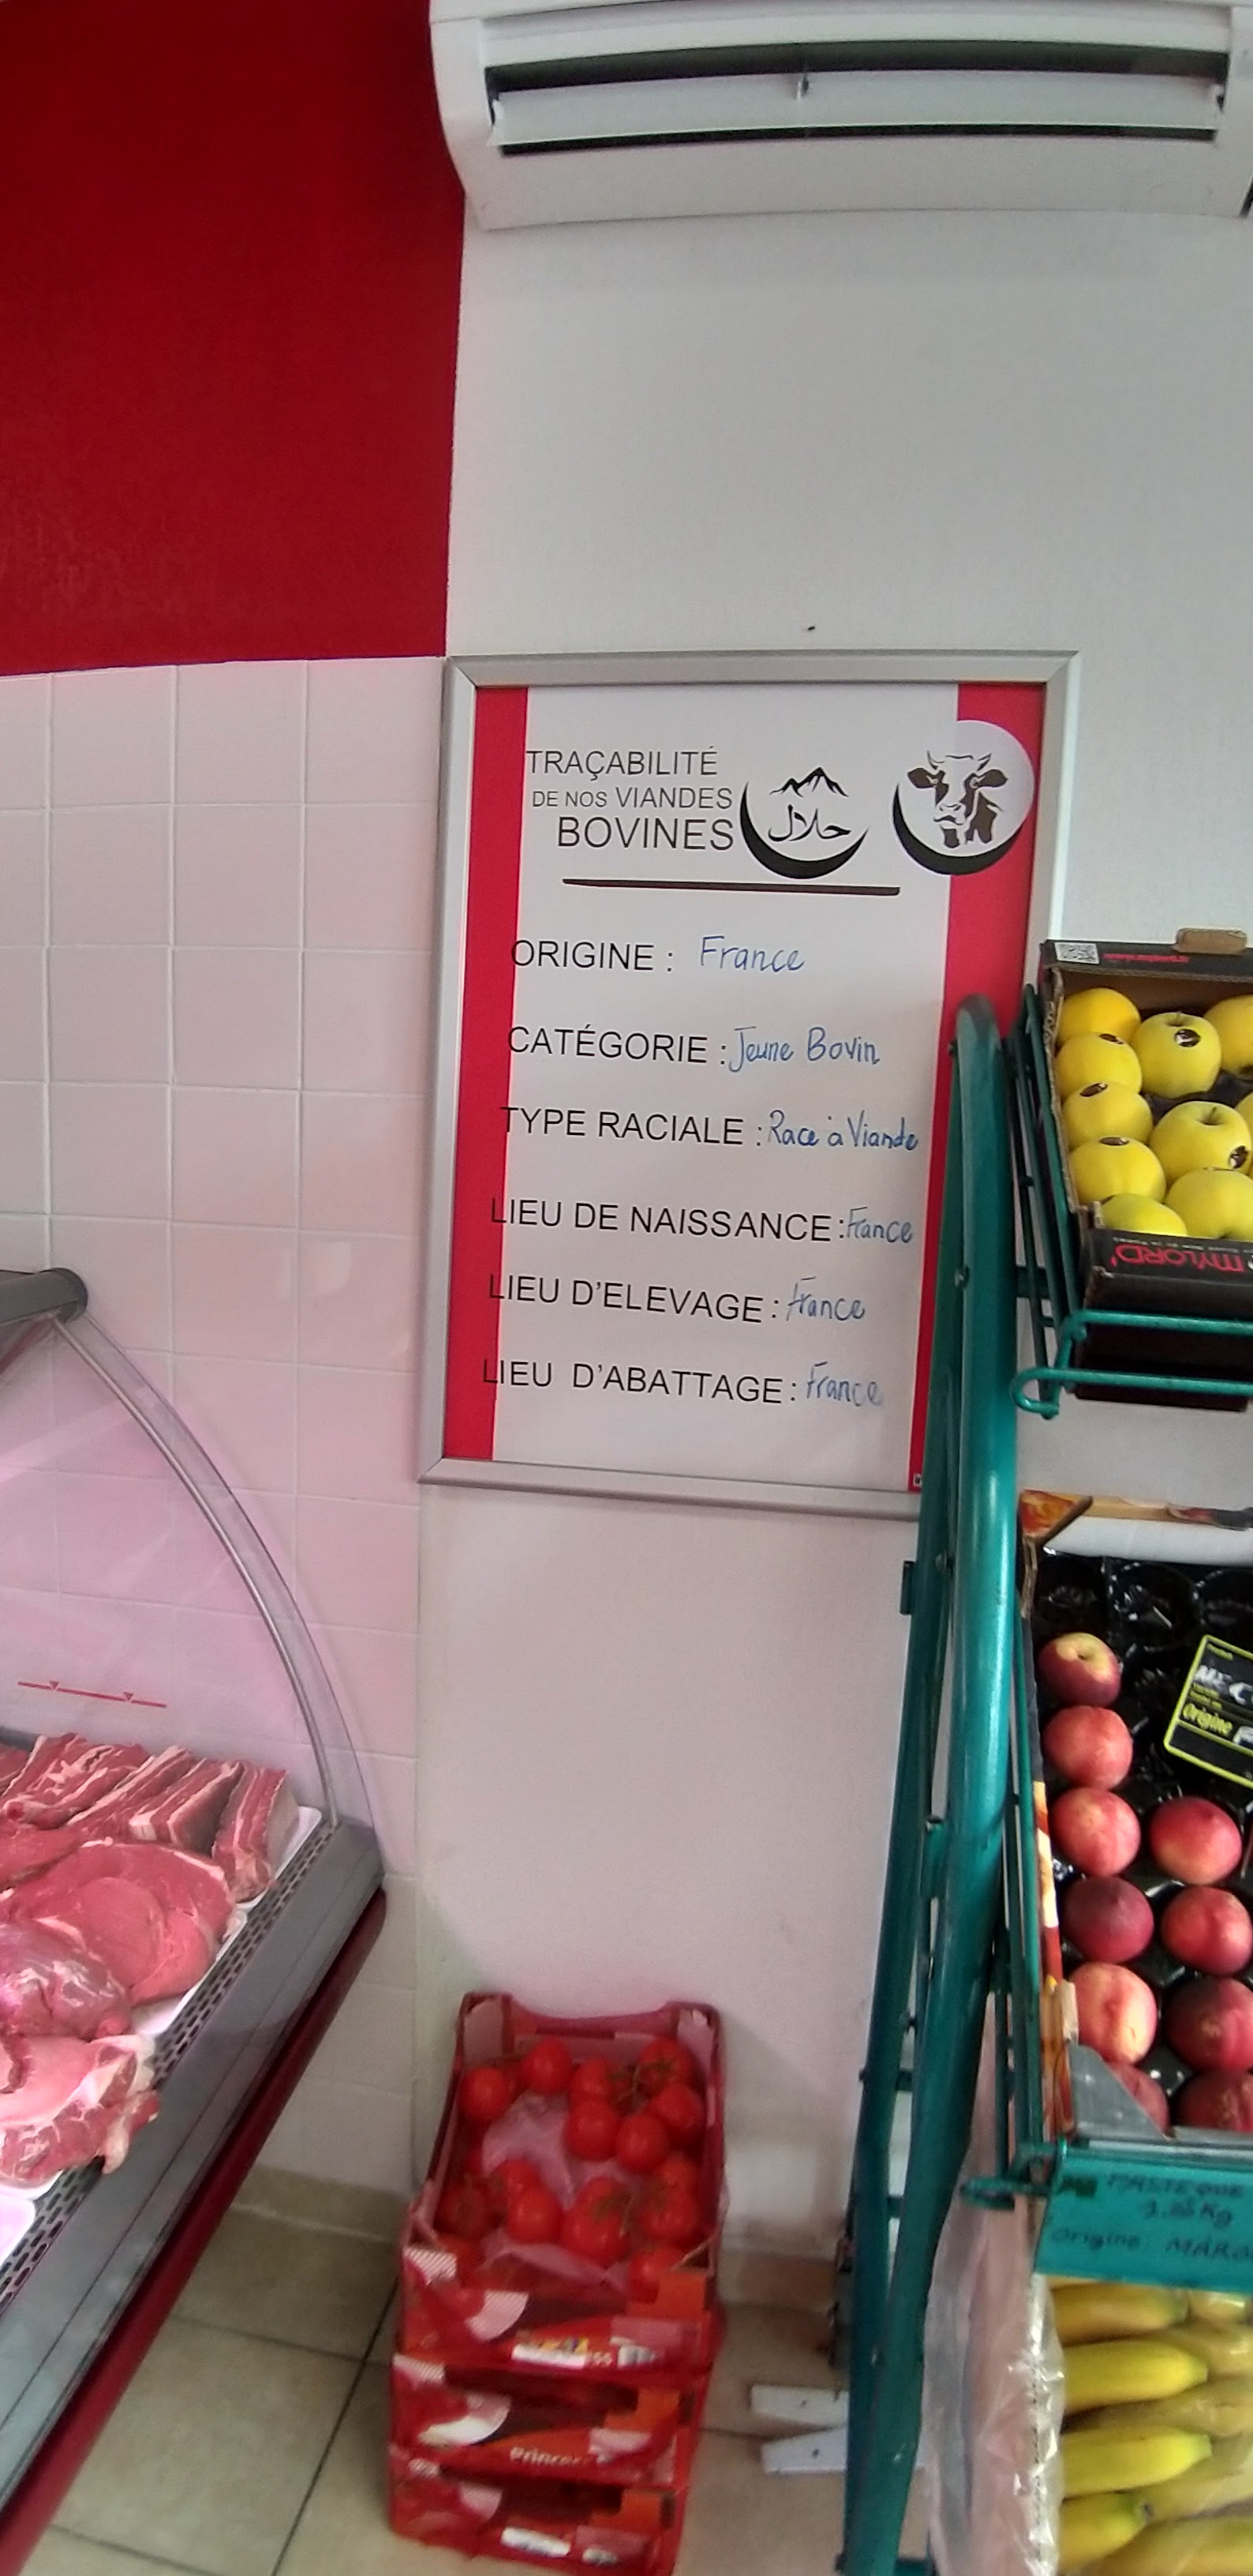 TRAÇABILITÉ
DE NOS VIANDES
BOVINES
حلال
ORIGINE : France
CATÉGORIE : Jeune Bovin
TYPE RACIALE : Race à Viande
LIEU DE NAISSANCE : France
LIEU D'ELEVAGE : France
LIEU D'ABATTAGE : France
MYLORD'
Origine
Origine